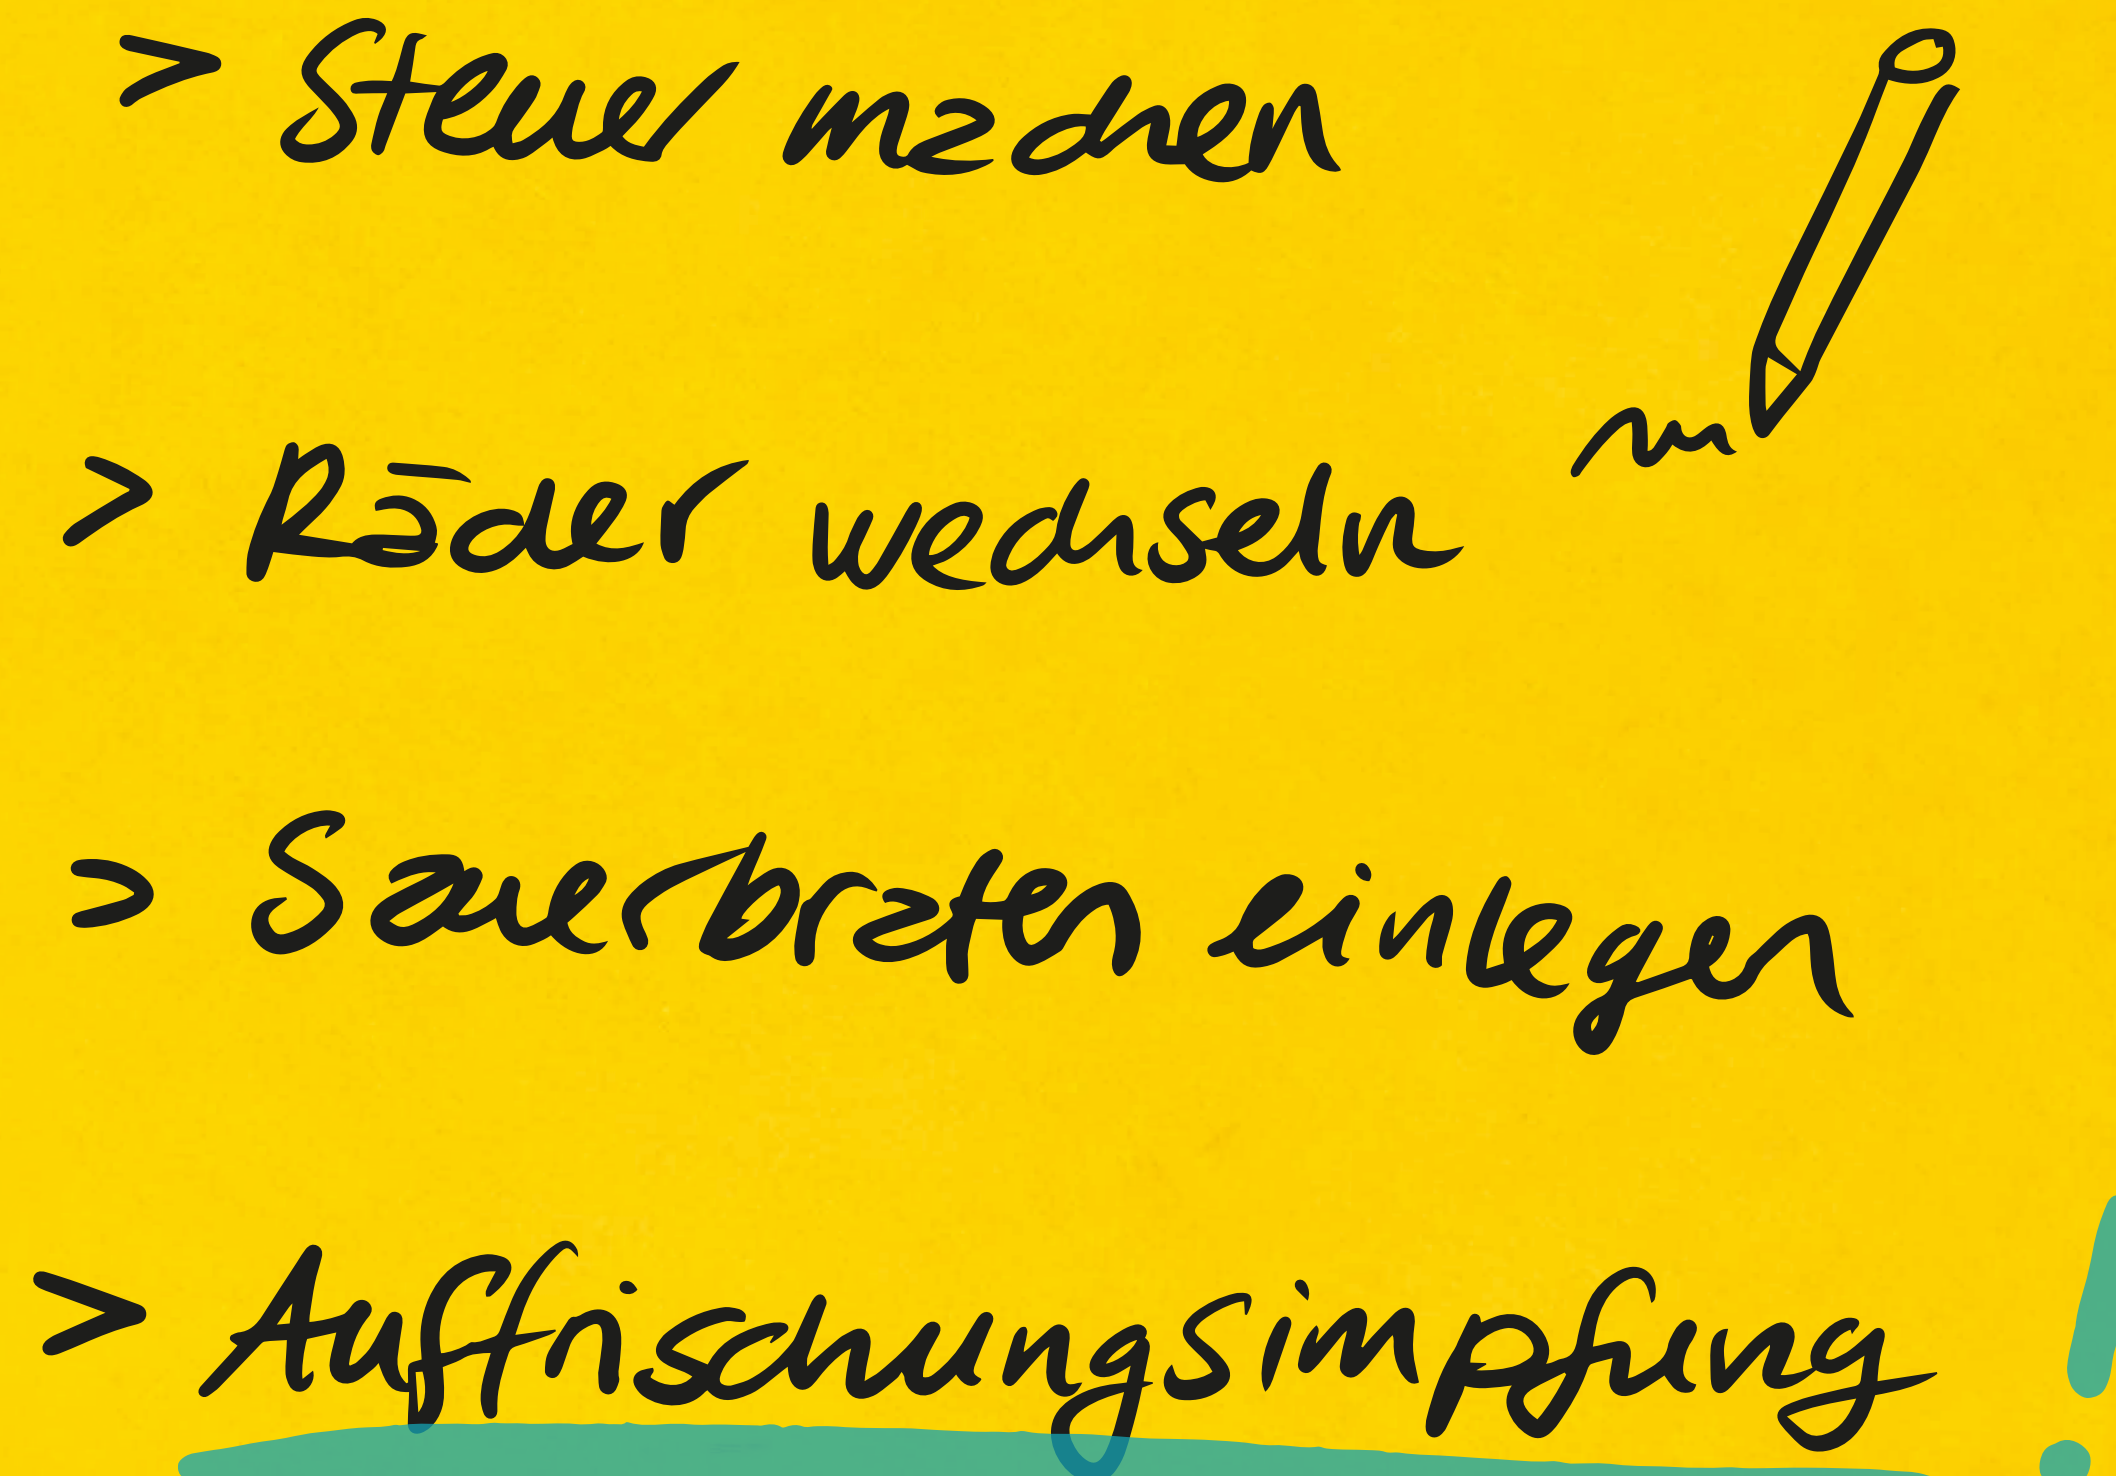 > Steuer machen
> Räder wechseln
> Sauerbraten einlegen
> Auffrischungsimpfung !